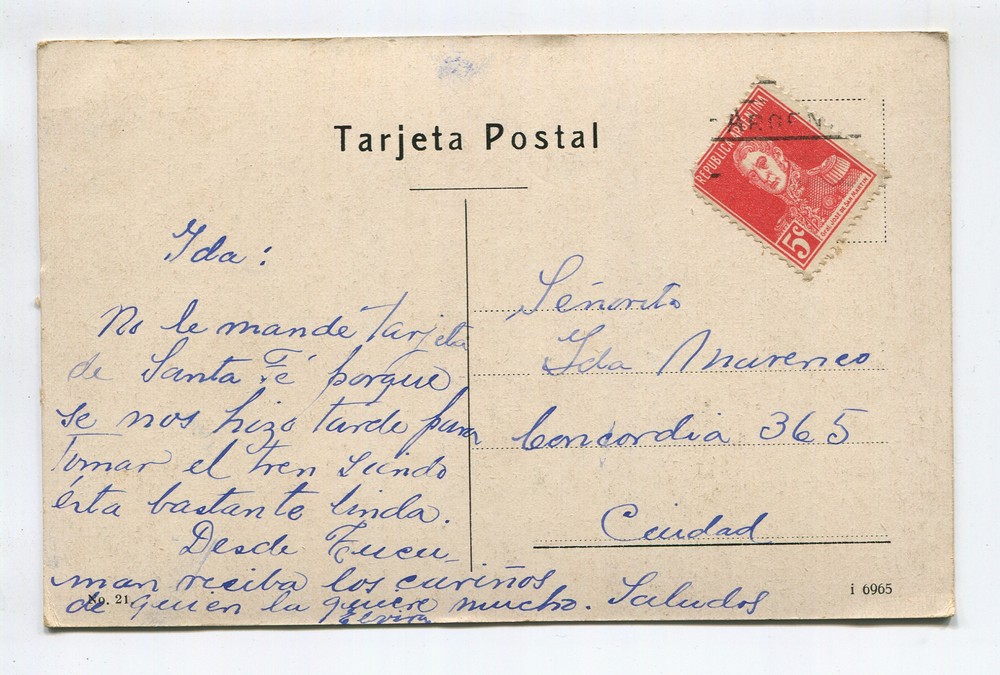 Tarjeta Postal
ARGEN
REPUBLICA ARGENTINA
GRAL JOSÉ DE SAN MARTIN
5c
Ida:
No le mande tarjeta
de Santa Fé porque
se nos hizo tarde para
tomar el tren siendo
ésta bastante linda.
Desde Tucu-
man reciba los cariños
de quien la quiere mucho. Saludos
Elvira
Señorita
Ida Marenco
Concordia 365
Ciudad
No. 21
i 6965